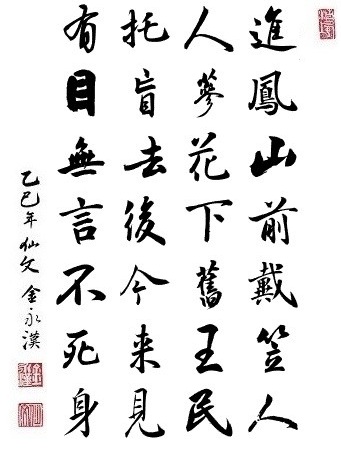 進鳳山前戴笠人
人蔘花下舊王民
托盲去後今来見
有目無言不死身
乙巳年 仙文 金永漢